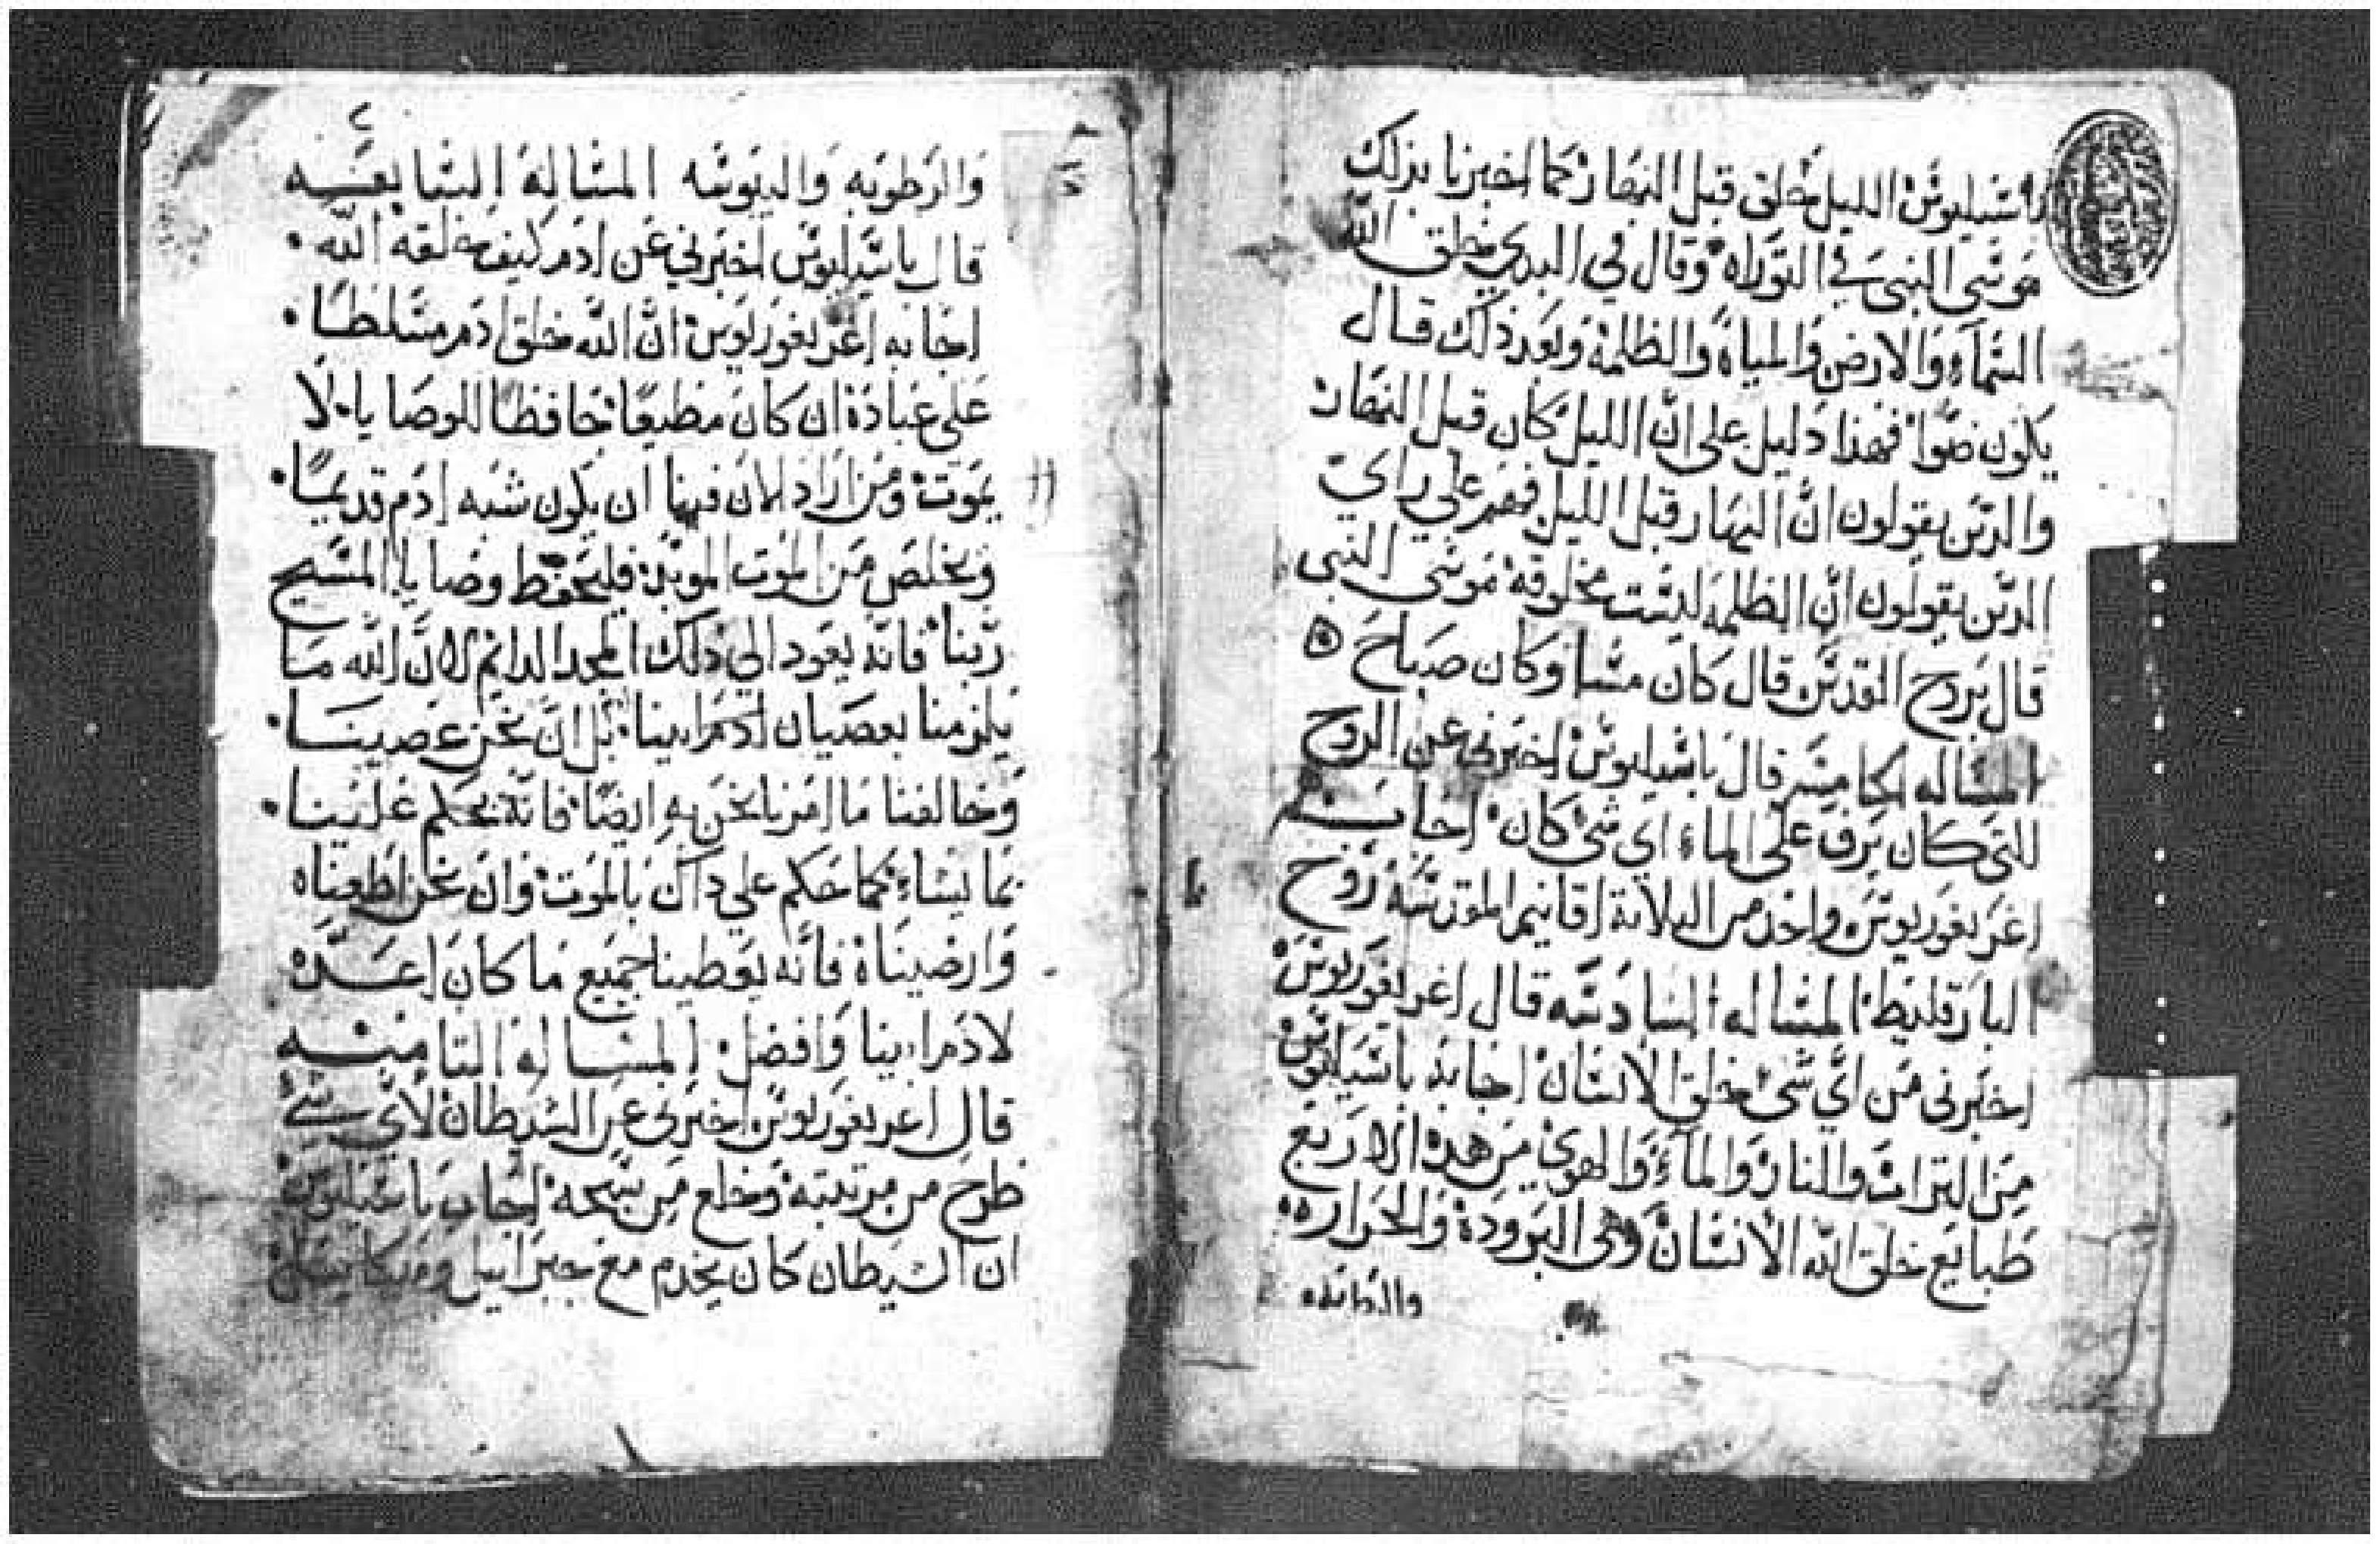 باسيليوس الليل خلق قبل النهار كما اخبرنا بذلك
موسى النبي في التوراه وقال في البدي خلق الله
السماء والارض والمياه والظلمة وبعد ذلك قال
يكون ضوا فهذا دليل على ان الليل كان قبل النهار
والدين يقولون ان النهار قبل الليل فهم على راي
الدين يقولون ان الظلمه ليست مخلوقة موسى النبي
قال بروح القدس قال كان مسا وكان صباح
المساله الخامسه قال باسيليوس اخبرني عن الروح
التى كان يرف على الماء اي شي كان اجابه
اغريغوريوس واحد من الثلاثة اقانيم المقدسة روح
البارقليط المساله السادسه قال اغريغوريوس
اخبرني من اي شي خلق الانسان اجابه باسيليوس
من التراب والنار والماء والهوى من هذه الاربع
طبايع خلق الله الانسان وهي البرودة والحراره
والرطوبه
والرطوبه واليبوسه المسالة السابعه
قال باسيليوس اخبرني عن ادم كيف خلقه الله
اجابه اغريغوريوس ان الله خلق ادم مسلطا
على عبادة ان كان مطيعا حافظا للوصايا لا
يموت ومن اراد الان فينا ان يكون شبه ادم قديما
ويخلص من الموت الموبد فليحفظ وصايا المسيح
ربنا فانه يعود الى ذلك المجد الدايم لان الله ما
يلزمنا بعصيان ادم ابينا بل ان نحن عصينا
وخالفنا ما امرنا نحن به ايضا فانه يحكم علينا
بما يشاء كما حكم علي داك بالموت وان نحن اطعناه
وارضيناه فانه يعطينا جميع ما كان اعده
لادم ابينا وافضل المسالة الثامنه
قال اغريغوريوس اخبرني عن الشيطان لاي شي
طرح من مرتبته وخلع من سبحه اجابه باسيليوس
ان الشيطان كان يخدم مع جبراييل وميكاييل